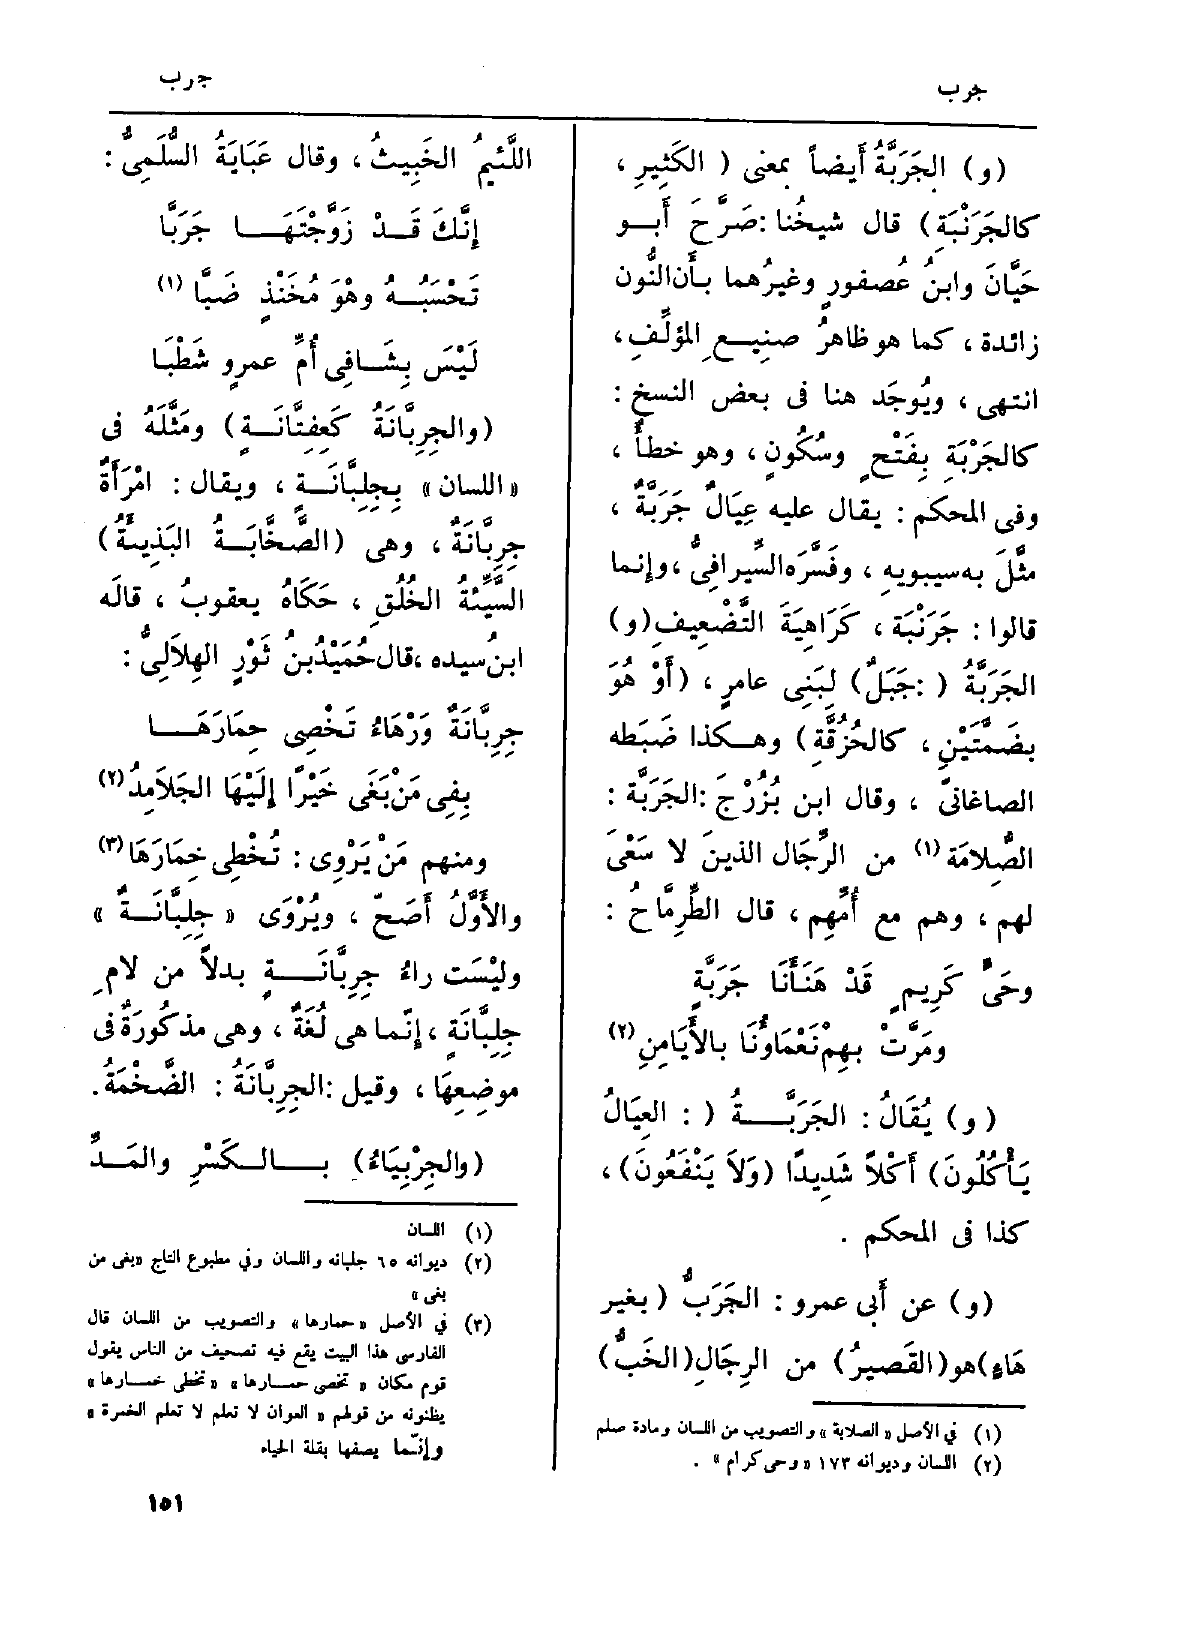 جرب
(و) الجَرَبَّةُ أَيضاً بمعنى ( الكَثِيرِ ،
كالجَرَنْبَةِ) قال شيخُنا :صَرَّحَ أَبو
حَيَّانَ وابنُ عُصفورٍ وغيرُهما بأَن النُّون
زائدة ، كما هو ظاهرُ صنِيعِ المؤلِّفِ،
انتهى ، ويُوجَد هنا فى بعض النسخ :
كالجَرْبَةِ بِفَتْحٍ وسُكُونٍ ، وهو خطأٌ ،
وفى المحكم : يقال عليه عِيَالٌ جَرَبَّةٌ ،
مثَّلَ به سيبويهِ ، وفَسَّرَه السِّيرافىُّ ،وإِنما
قالوا : جَرَنْبَة ، كَرَاهِيَةَ التَّضْعِيفِ(و)
الجَرَبَّةُ ( :جَبَلٌ) لِبَنِى عامرٍ ، (أَوْ هُوَ
بضَمَّتَيْنِ ، كالحُزُقَّةِ) وهكذا ضَبَطه
الصاغانىّ ، وقال ابن بُزُرْجَ :الجَرَبَّة :
الصُّلامَة (١) من الرِّجَال الذينَ لا سَعْىَ
لهم ، وهم مع أُمِّهم ، قال الطِّرِمَّاحُ :
وحَىٍّ كَرِيمٍ قَدْ هَنَأْنَا جَرَبَّةٍ
ومَرَّتْ بهِمْ نَعْمَاؤُنَا بالأَيَامِنِ (٢)
(و) يُقَالُ : الجَرَبَّةُ ( : العِيَالُ
يَأْكُلُونَ) أَكْلاً شَدِيدًا (وَلاَ يَنْفَعُونَ) ،
كذا فى المحكم .
(و) عن أَبى عمرو : الجَرَبُّ (بغير
هَاءٍ)هو(القَصِيرُ) من الرِجَالِ(الخَبُّ)
(١) في الأصل « الصلابة » والتصويب من اللسان ومادة صلم
(٢) اللسان وديوانه ١٧٣ «وحى كرام » .
جرب
اللَّئِيمُ الخَبِيثُ ، وقال عَبَايَةُ السُّلَمِىُّ :
إِنَّكَ قَدْ زَوَّجْتَهَا جَرَبَّا
تَحْسَبُهُ وهْوَ مُخَنْذٍ ضَبَّا (١)
لَيْسَ بِشَافِى أُمَّ عمرٍو شَطْبَا
(والجِرِبَّانَةُ كَعِفِتَّانَةٍ) ومَثَّلَهُ فى
«اللسان» بِجِلِبَّانَةٍ ، ويقال : امْرَأَةٌ
جِرِبَّانَةٌ ، وهى (الصَّخَّابَةُ البَذِيئَةُ)
السَّيِّئَةُ الخُلُقِ ، حَكَاهُ يعقوبُ ، قالَه
ابنُ سيده ،قال حُمَيْدُ بنُ ثَوْرٍ الهِلاَلِىُّ :
جِرِبَّانَةٌ وَرْهَاءُ تَخْصِى حِمَارَهَا
بِفِى مَنْ بَغَى خَيْرًا إِلَيْهَا الجَلاَمِدُ (٢)
ومنهم مَنْ يَرْوِى : تُخْطِى خِمَارَهَا (٣)
والأَوَّلُ أَصَحّ ، ويُرْوَى « جِلِبَّانَةٌ »
وليْسَت راءُ جِرِبَّانَةٍ بدلاً من لامِ
جلِبَّانَةٍ ، إِنَّما هى لُغَةٌ ، وهى مذكُورَةٌ فى
موضِعِهَا ، وقيل :الجِرِبَّانَةُ : الضَّخْمَةُ.
(والجِرْبِيَاءُ) بالكَسْرِ والمَدِّ
(١) اللسان
(٢) ديوانه ٦٥ جلبانه واللسان وفي مطبوع التاج «بغى من
بغى »
(٣) في الأصل «حمارها» والتصويب من اللسان قال
الفارسى هذا البيت يقع فيه تصحيف من الناس يقول
قوم مكان « تخصى حمارها » «تخطى خمارها »
يظنونه من قولهم « العوان لا تعلم الخمرة »
وإنّما يصفها بقلة الحياه
١٥١